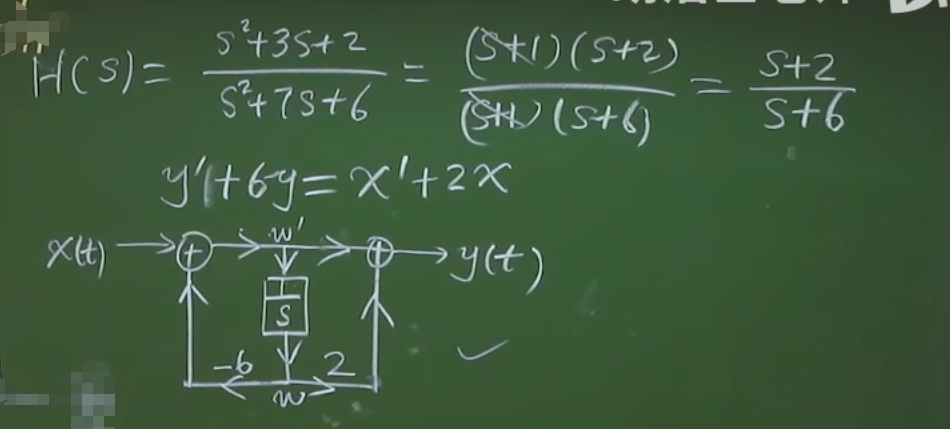 H(s) = (s²+3s+2)/(s²+7s+6) = (s+1)(s+2)/(s+1)(s+6) = (s+2)/(s+6)
y'+6y=x'+2x
x(t) + w' + y(t)
1/s
-6 2
w